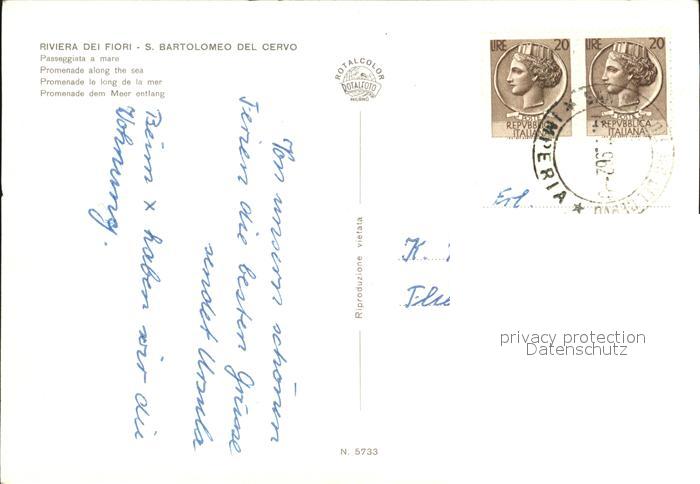 RIVIERA DEI FIORI - S. BARTOLOMEO DEL CERVO
Passeggiata a mare
Promenade along the sea
Promenade le long de la mer
Promenade dem Meer entlang
ROTALCOLOR
ROTALFOTO
MILANO
LIRE 20
POSTE
REPVBBLICA
ITALIANA
LIRE 20
POSTE
REPVBBLICA
ITALIANA
IMPERIA
Von unsern schönen
Ferien die besten Grüsse
sendet Ursula
Beim x haben wir die
Wohnung.
Riproduzione vietata
Erl.
K.
privacy protection
Datenschutz
N. 5733